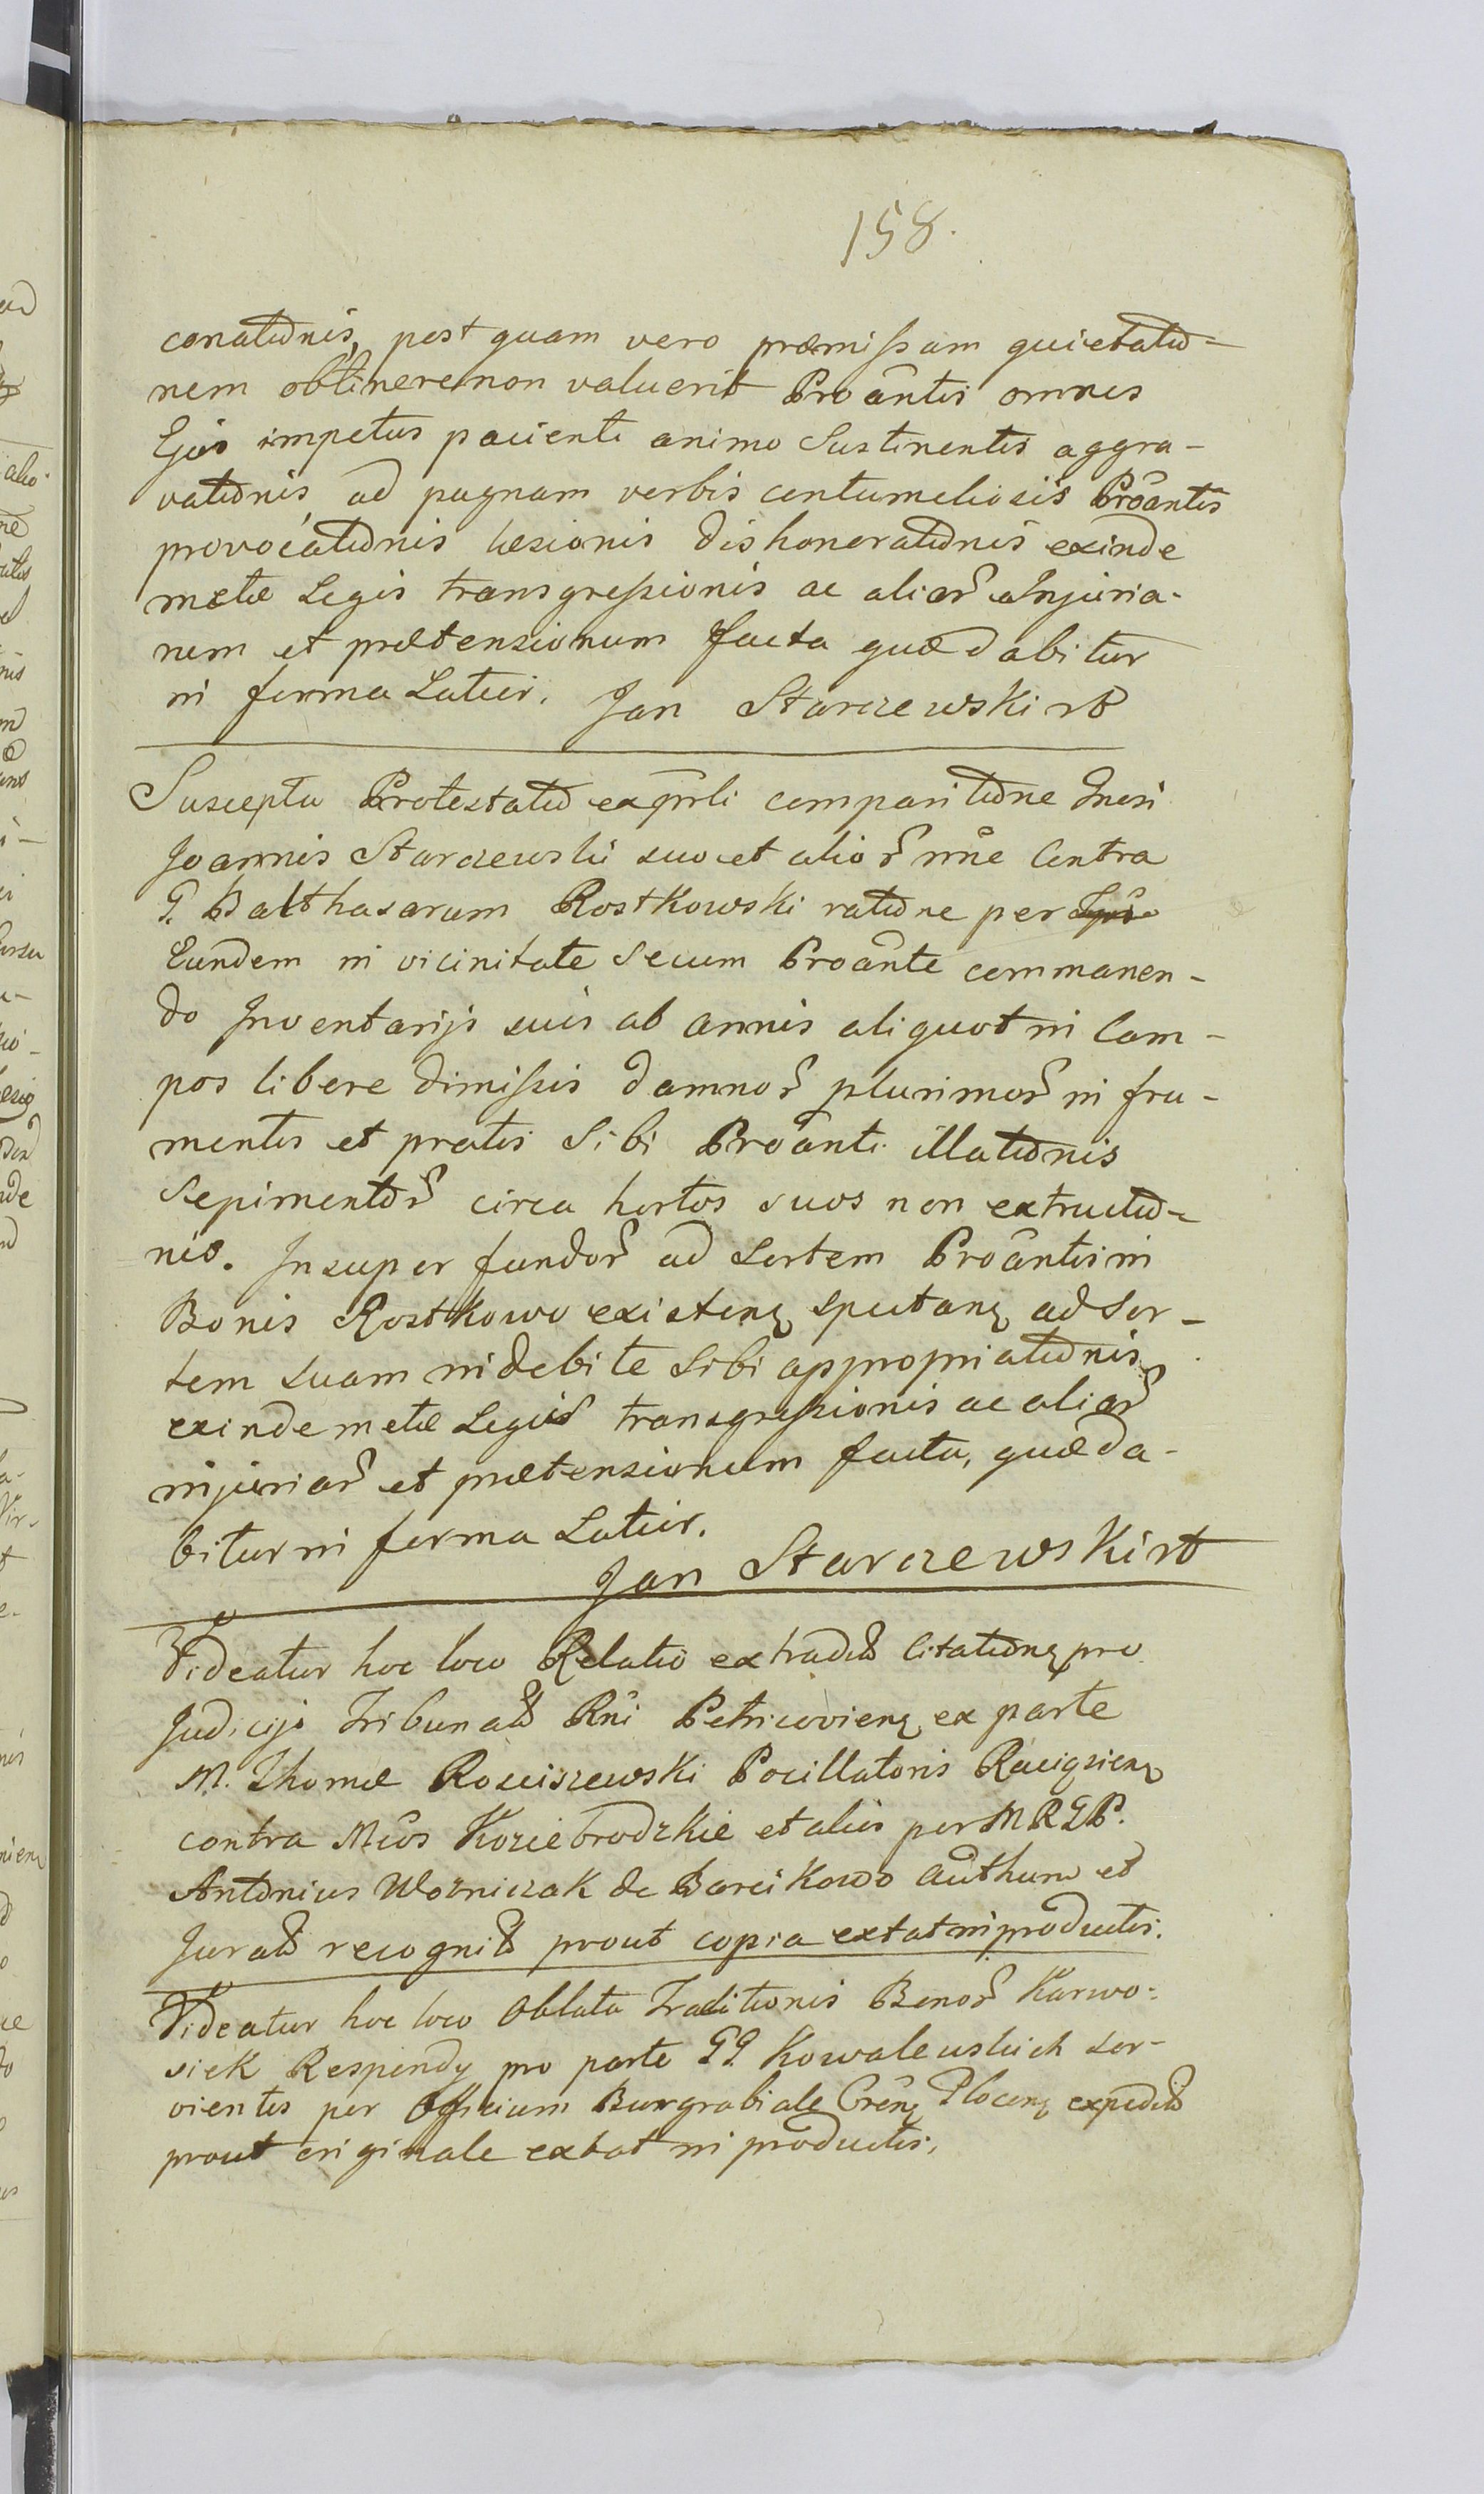 158.
conationis, post quam vero præmissam quietatio-
nem obtinere non valuerit Proãntis omnes
Ejus impetus pacienti animo Sustinentis aggra-
vationis, ad pugnam verbis contumeliosis Proãntis
provocationis læsionis dishonorationis exinde
metæ Legis transgressionis ac aliar Injuria-
rum et prætensionum facta quæ dabitur
in forma Latiûi. Jan Starczewski
Suscepta Protestatio ex pñli comparitione Gnosi
Joannis Starczewski suo et alior nñe Contra
G. Balthasarum Rostkowski ratione per
Eundem in vicinitate Secum Proãnte commanen-
do Inventarijs suis ab annis aliquot in Cam-
pos libere dimissis damnor plurimor in fru-
mentis et pratis Sibi Proãnti illationis
Sepimentor circa hortos suos non extructio-
nis. Insuper fundor ad Sortem Proãntis in
Bonis Rostkowo existenꝫ spectanꝫ ad Sor-
tem suam indebite Sibi appropriationis
exinde metæ Legis transgressionis ac aliar
injuriar et prætensionum facta, quæ da-
bitur in forma Latiur.
Jan Starczewski
Videatur hoc loco Relatio extradit Citationꝫ pro
Judicijs Tribunal Rñi Petricovienꝫ ex parte
M. Thomæ Rosciszewski Pocillatoris Raciązienꝫ
contra Mcos Koziebrodzkie et alios per MRGP.
Antonius Wozniczak de Barcikowo authum et
Jurat recognit prout copia extat in productis.
Videatur hoc loco Oblata Traditionis Bonor Karwo-
siek Respondy pro parte GG Kowalewskich ser-
vientis per Officium Burgrabiale Creñꝫ Plocenꝫ expedit
prout originale extat in productis,